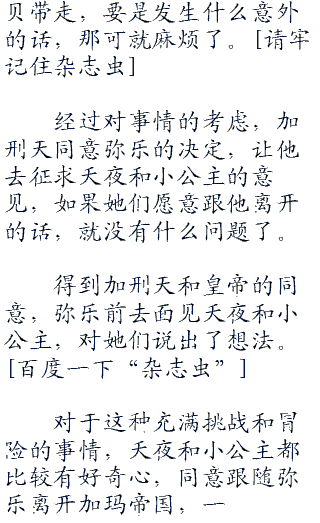 贝带走，要是发生什么意外
的话，那可就麻烦了。[请牢
记住杂志虫]
经过对事情的考虑，加
刑天同意弥乐的决定，让他
去征求天夜和小公主的意
见，如果她们愿意跟他离开
的话，就没有什么问题了。
得到加刑天和皇帝的同
意，弥乐前去面见天夜和小
公主，对她们说出了想法。
[百度一下“杂志虫”]
对于这种充满挑战和冒
险的事情，天夜和小公主都
比较有好奇心，同意跟随弥
乐离开加玛帝国，一